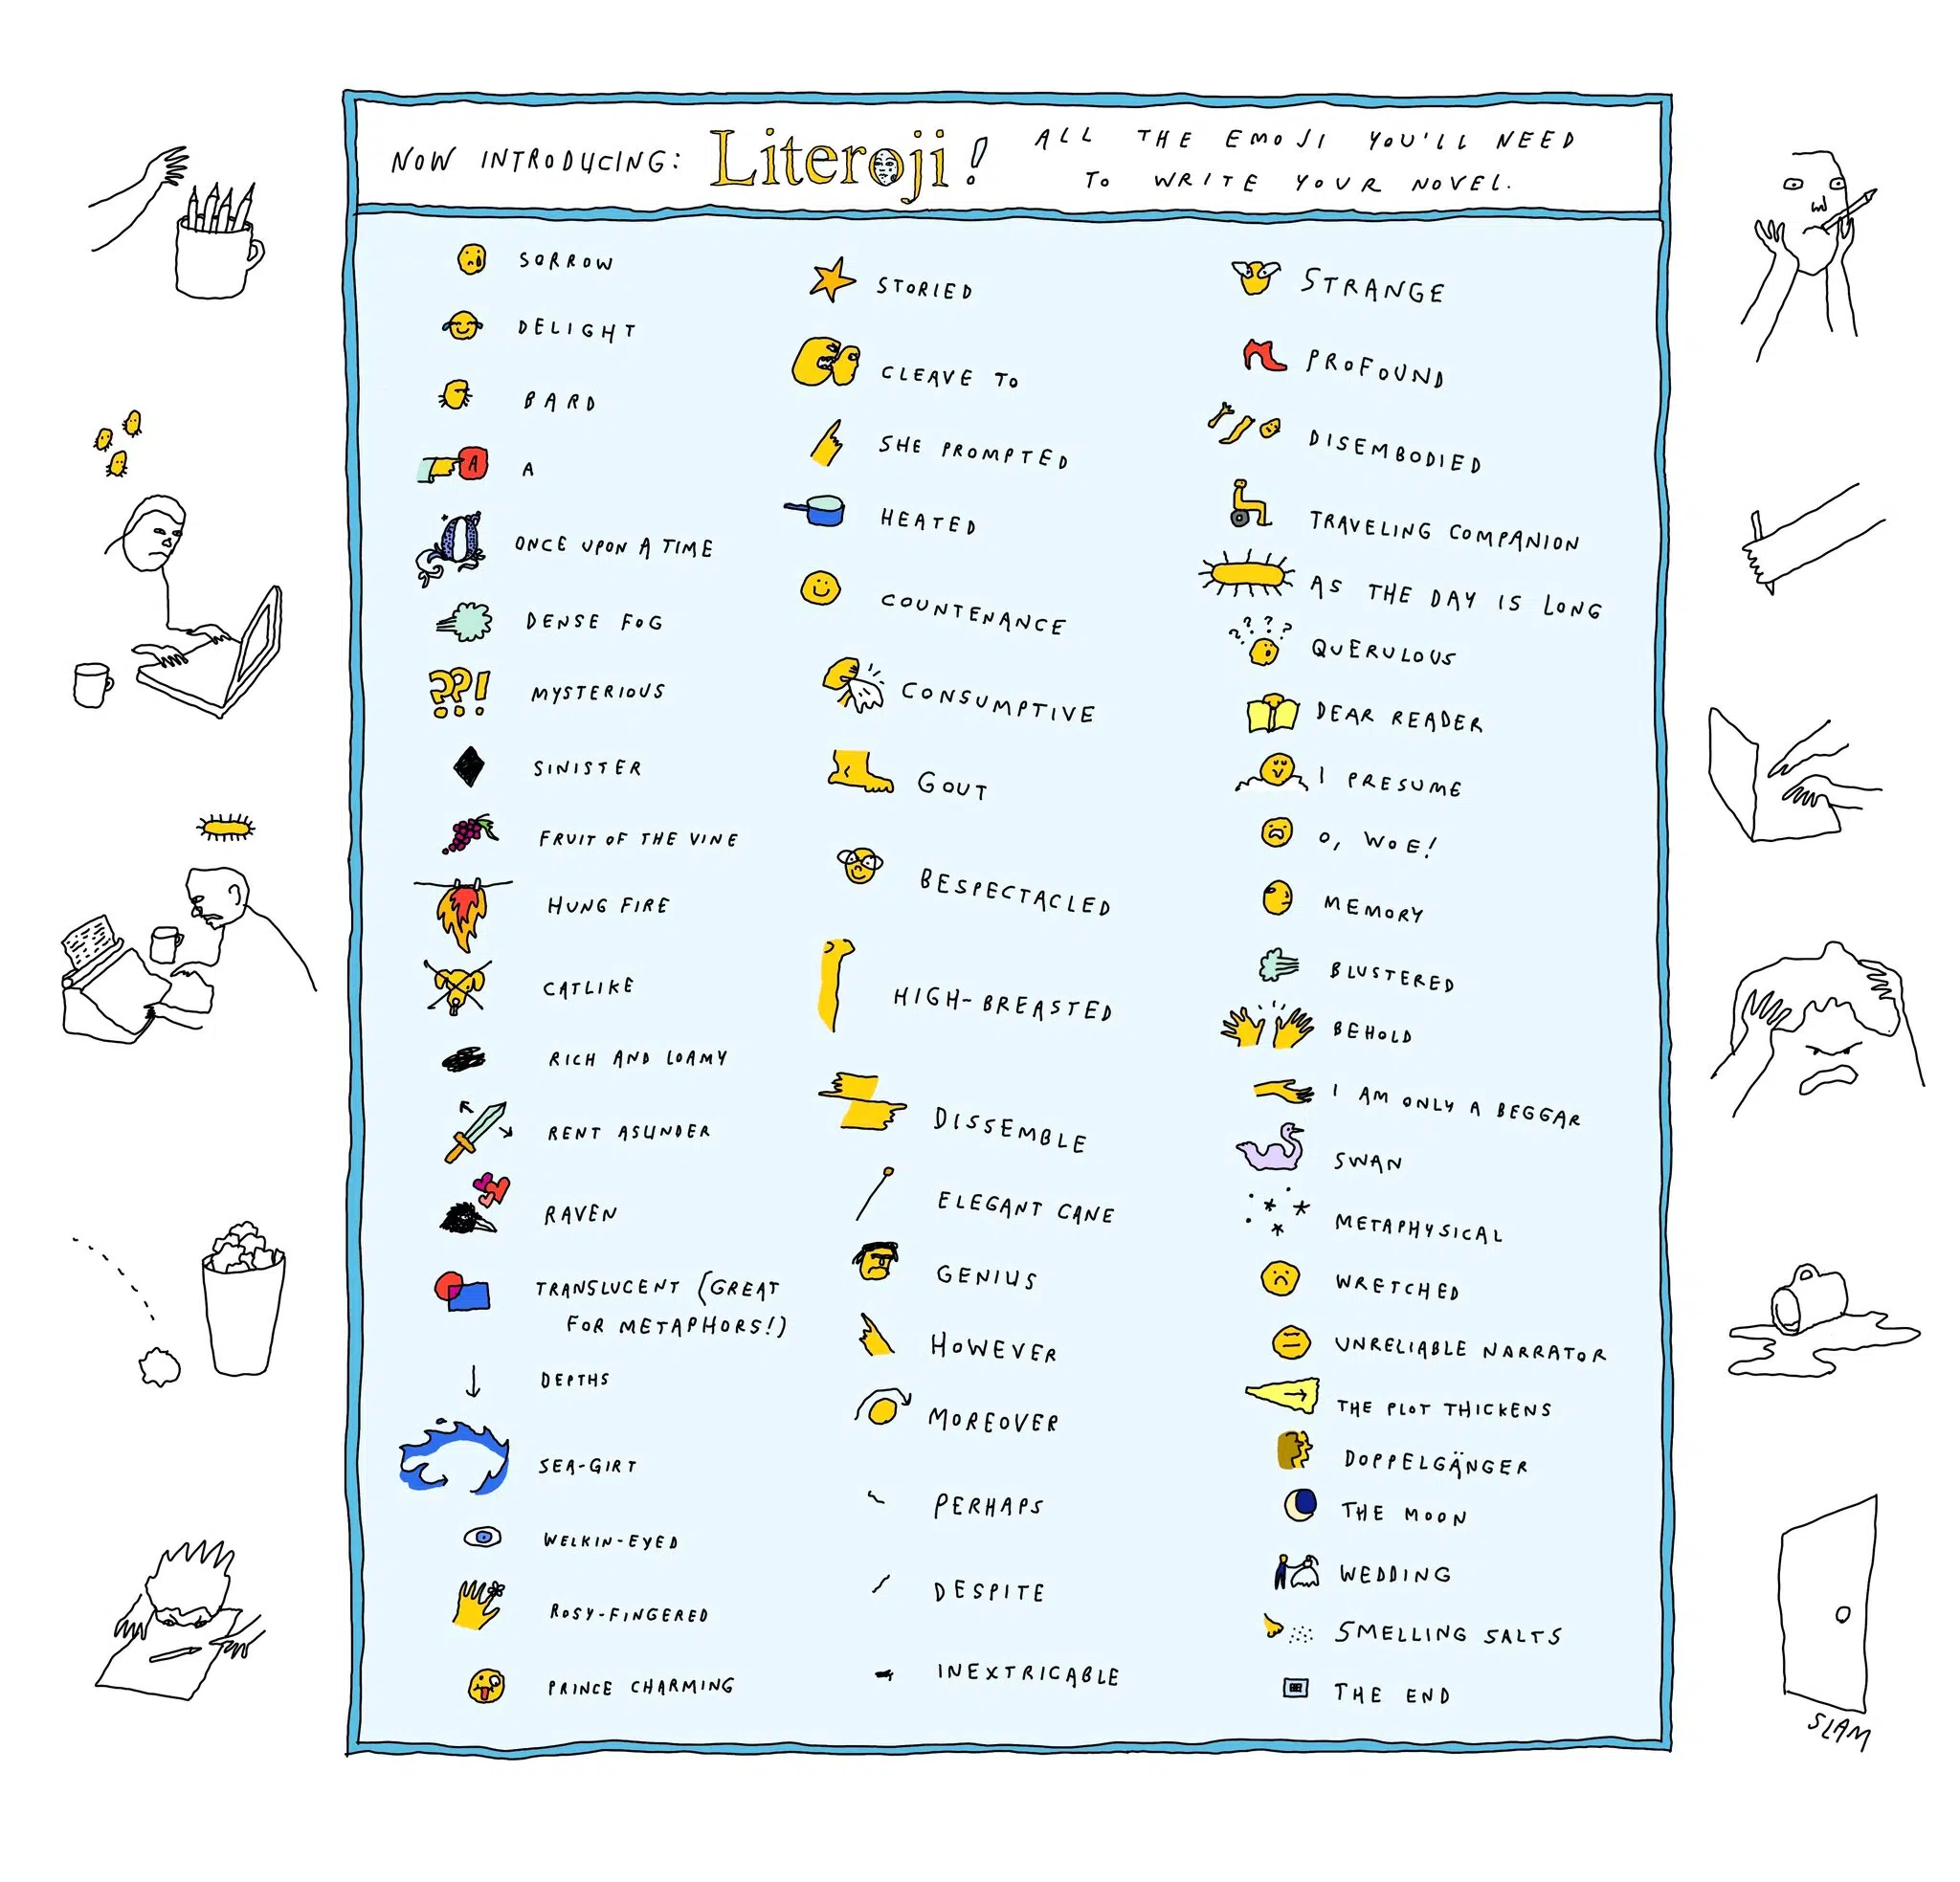 NOW INTRODUCING: Literoji! ALL THE EMOJI YOU'LL NEED
TO WRITE YOUR NOVEL.
SORROW
DELIGHT
BARD
A
A
ONCE UPON A TIME
DENSE FOG
??!
MYSTERIOUS
SINISTER
FRUIT OF THE VINE
HUNG FIRE
CATLIKE
RICH AND LOAMY
RENT ASUNDER
RAVEN
TRANSLUCENT (GREAT
FOR METAPHORS!)
DEPTHS
SEA-GIRT
WELKIN-EYED
ROSY-FINGERED
PRINCE CHARMING
STORIED
CLEAVE TO
SHE PROMPTED
HEATED
COUNTENANCE
CONSUMPTIVE
GOUT
BESPECTACLED
HIGH-BREASTED
DISSEMBLE
ELEGANT CANE
GENIUS
HOWEVER
MOREOVER
PERHAPS
DESPITE
INEXTRICABLE
STRANGE
PROFOUND
DISEMBODIED
TRAVELING COMPANION
AS THE DAY IS LONG
????
QUERULOUS
DEAR READER
I PRESUME
O, WOE!
MEMORY
BLUSTERED
BEHOLD
I AM ONLY A BEGGAR
SWAN
METAPHYSICAL
WRETCHED
UNRELIABLE NARRATOR
THE PLOT THICKENS
DOPPELGÄNGER
THE MOON
WEDDING
SMELLING SALTS
THE END
SLAM